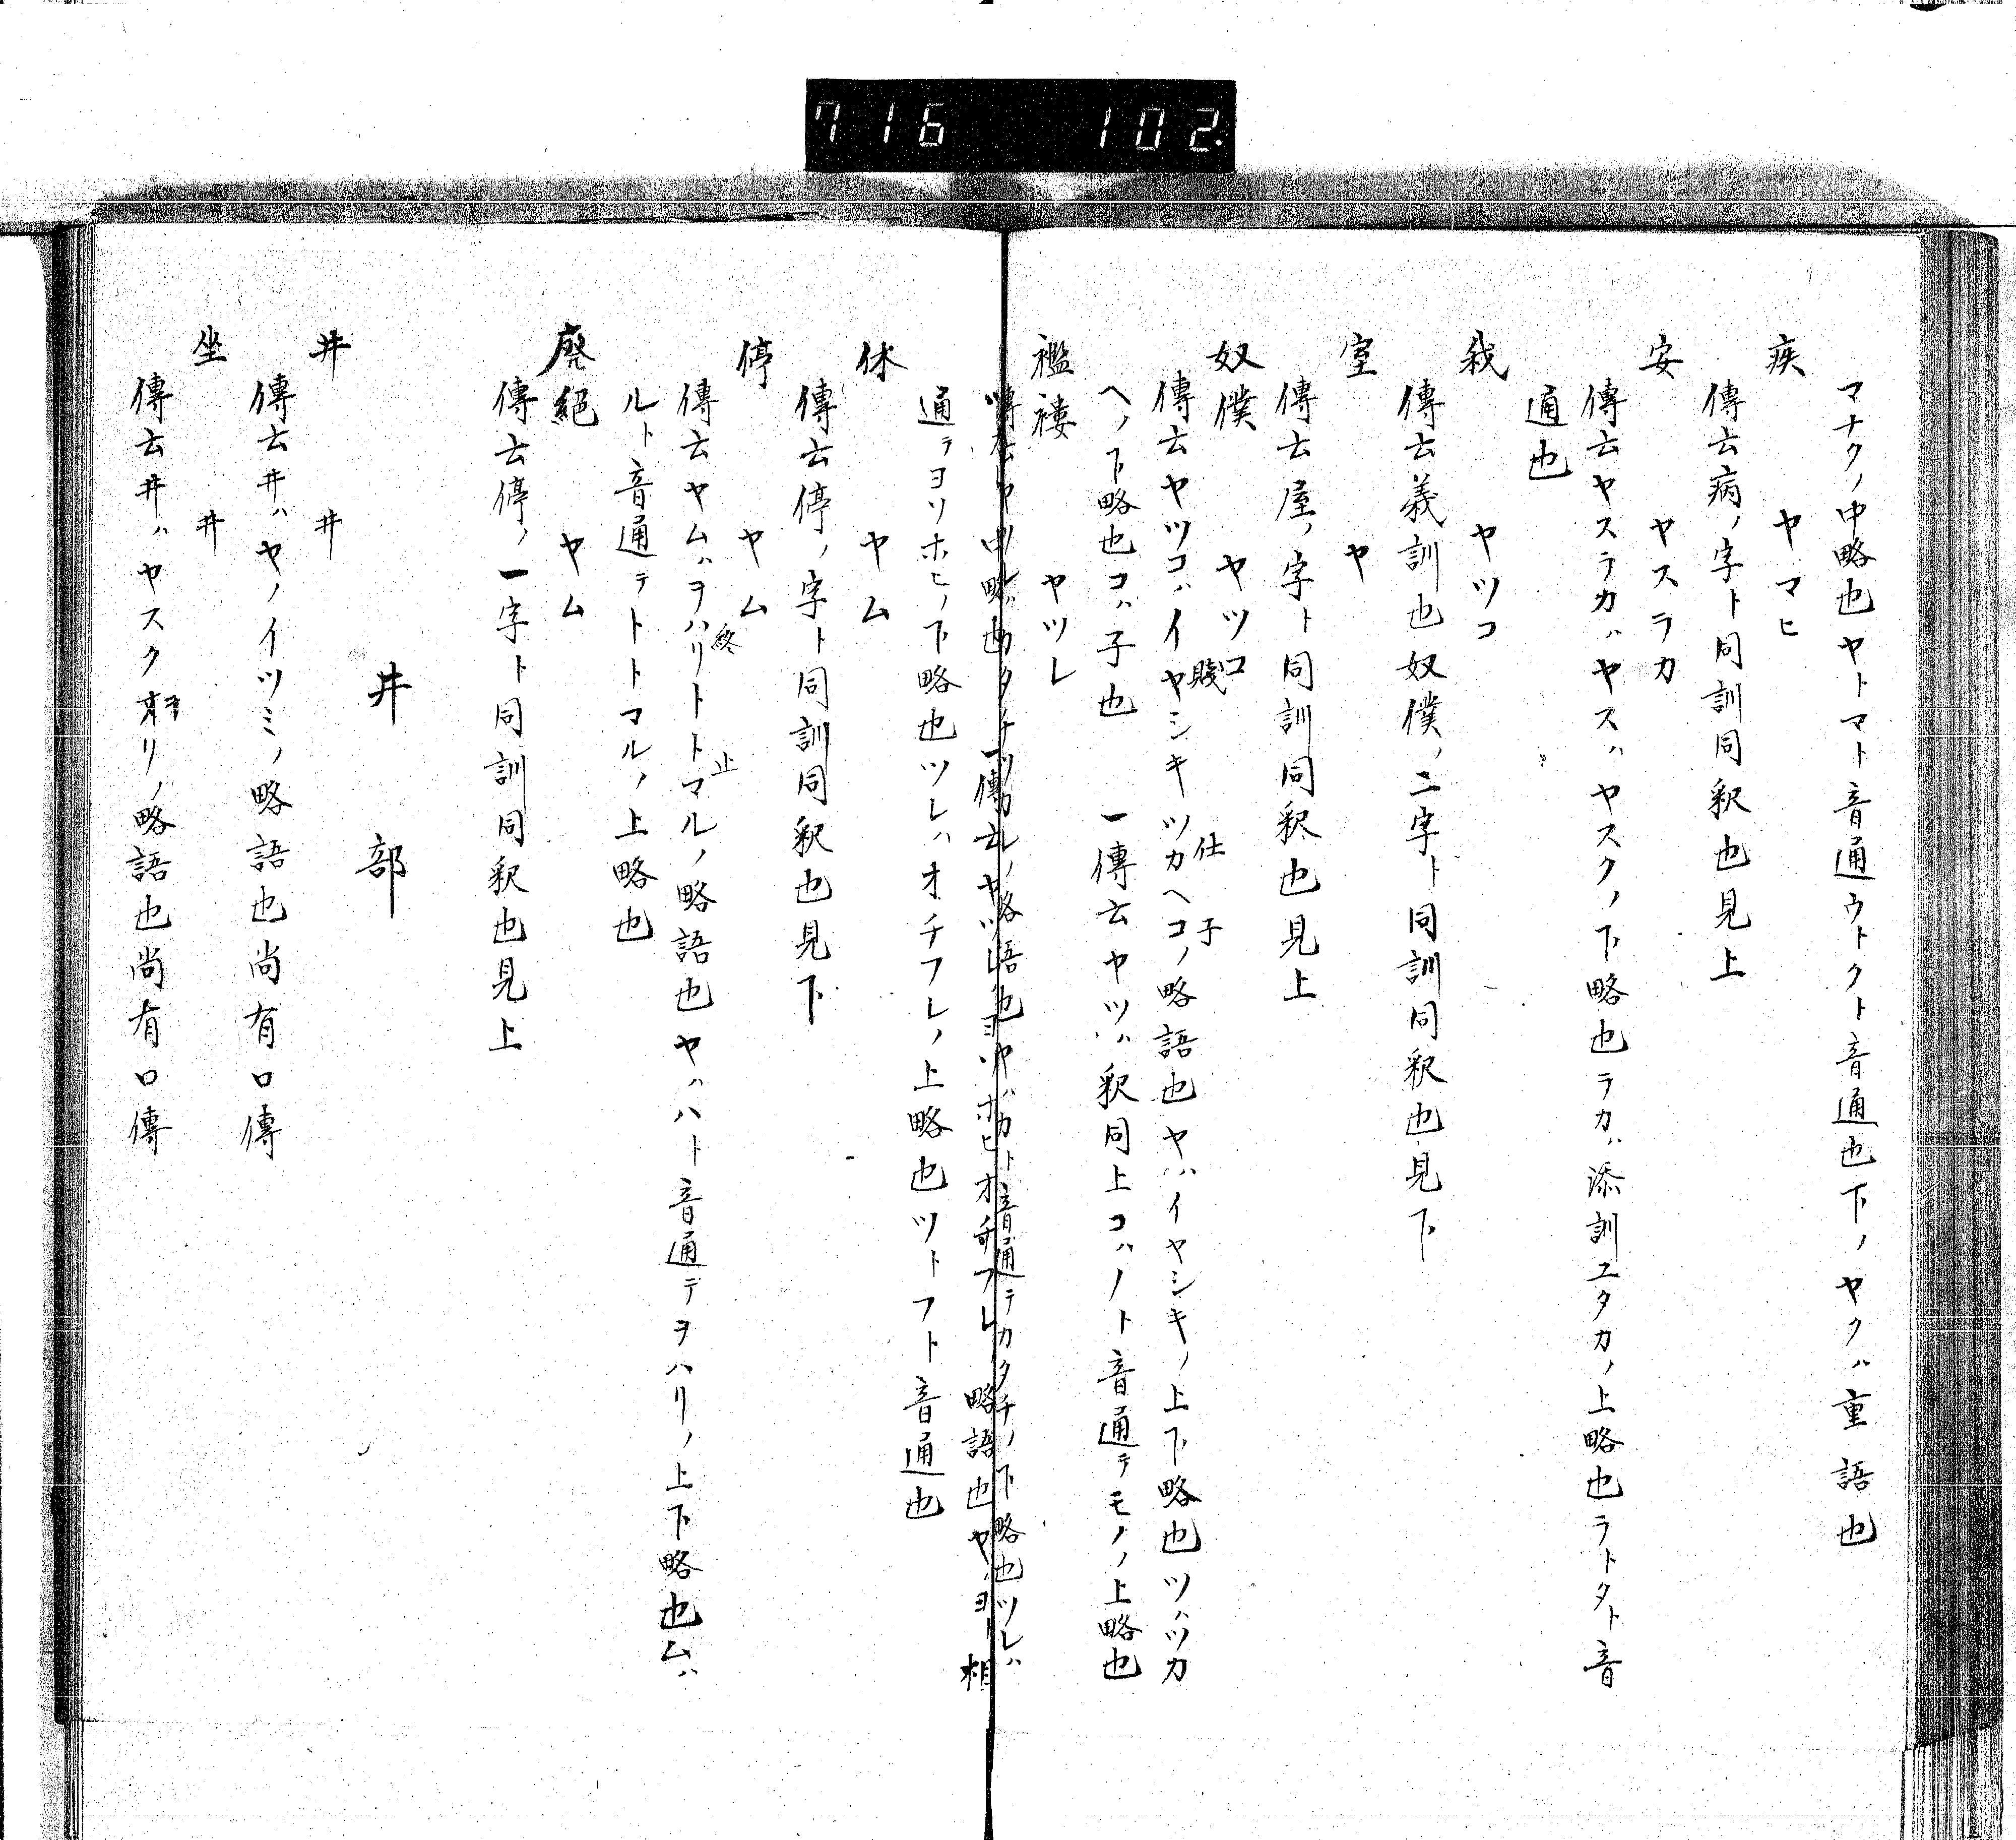 716 102.
マナクノ中略也ヤトマト音通ウトクト音通也下ノヤクハ重語也
疾 ヤマヒ
傳云病ノ字ト同訓同釈也見上
安 ヤスラカ
傳云ヤスラカハヤスハヤスクノ下略也ラカハ添訓ユタカノ上略也ラトタト音
通也
我 ヤツコ
傳云義訓也奴僕ノ二字ト同訓同釈也見下
室 ヤ
傳云屋ノ字ト同訓同釈也見上
奴僕 ヤツコ
傳云ヤツコハイヤシキツカヘコノ略語也ヤハイヤシキノ上下略也ツハツカ
賤 仕 子
ヘノ下略也コハ子也 一傳云ヤツハ釈同上コハノト音通テモノノ上略也
襤褸 ヤツレ
カレノ略語也ヤハカト音通テカタチノ下略也ツレハ
中略也 一傳云ヤツレヨソホヒオチフレ略語也ヤハヨト相
通テヨソホヒノ下略也ツレハオチフレノ上略也ツトフト音通也
休 ヤム
傳云停ノ字ト同訓同釈也見下
停 ヤム
傳云ヤムハヲハリトトマルノ略語也ヤハハト音通テヲハリノ上下略也ムハ
終 止
ルト音通テトトマルノ上略也
廃絕 ヤム
傳云停ノ一字ト同訓同釈也見上
井部
井 井
傳云井ハヤノイツミノ略語也尚有口傳
坐 井
傳云井ハヤスクヲリノ略語也尚有口傳